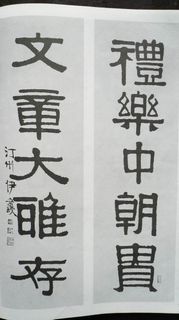 禮樂中朝貴
文章大雅存
汀州伊秉綬